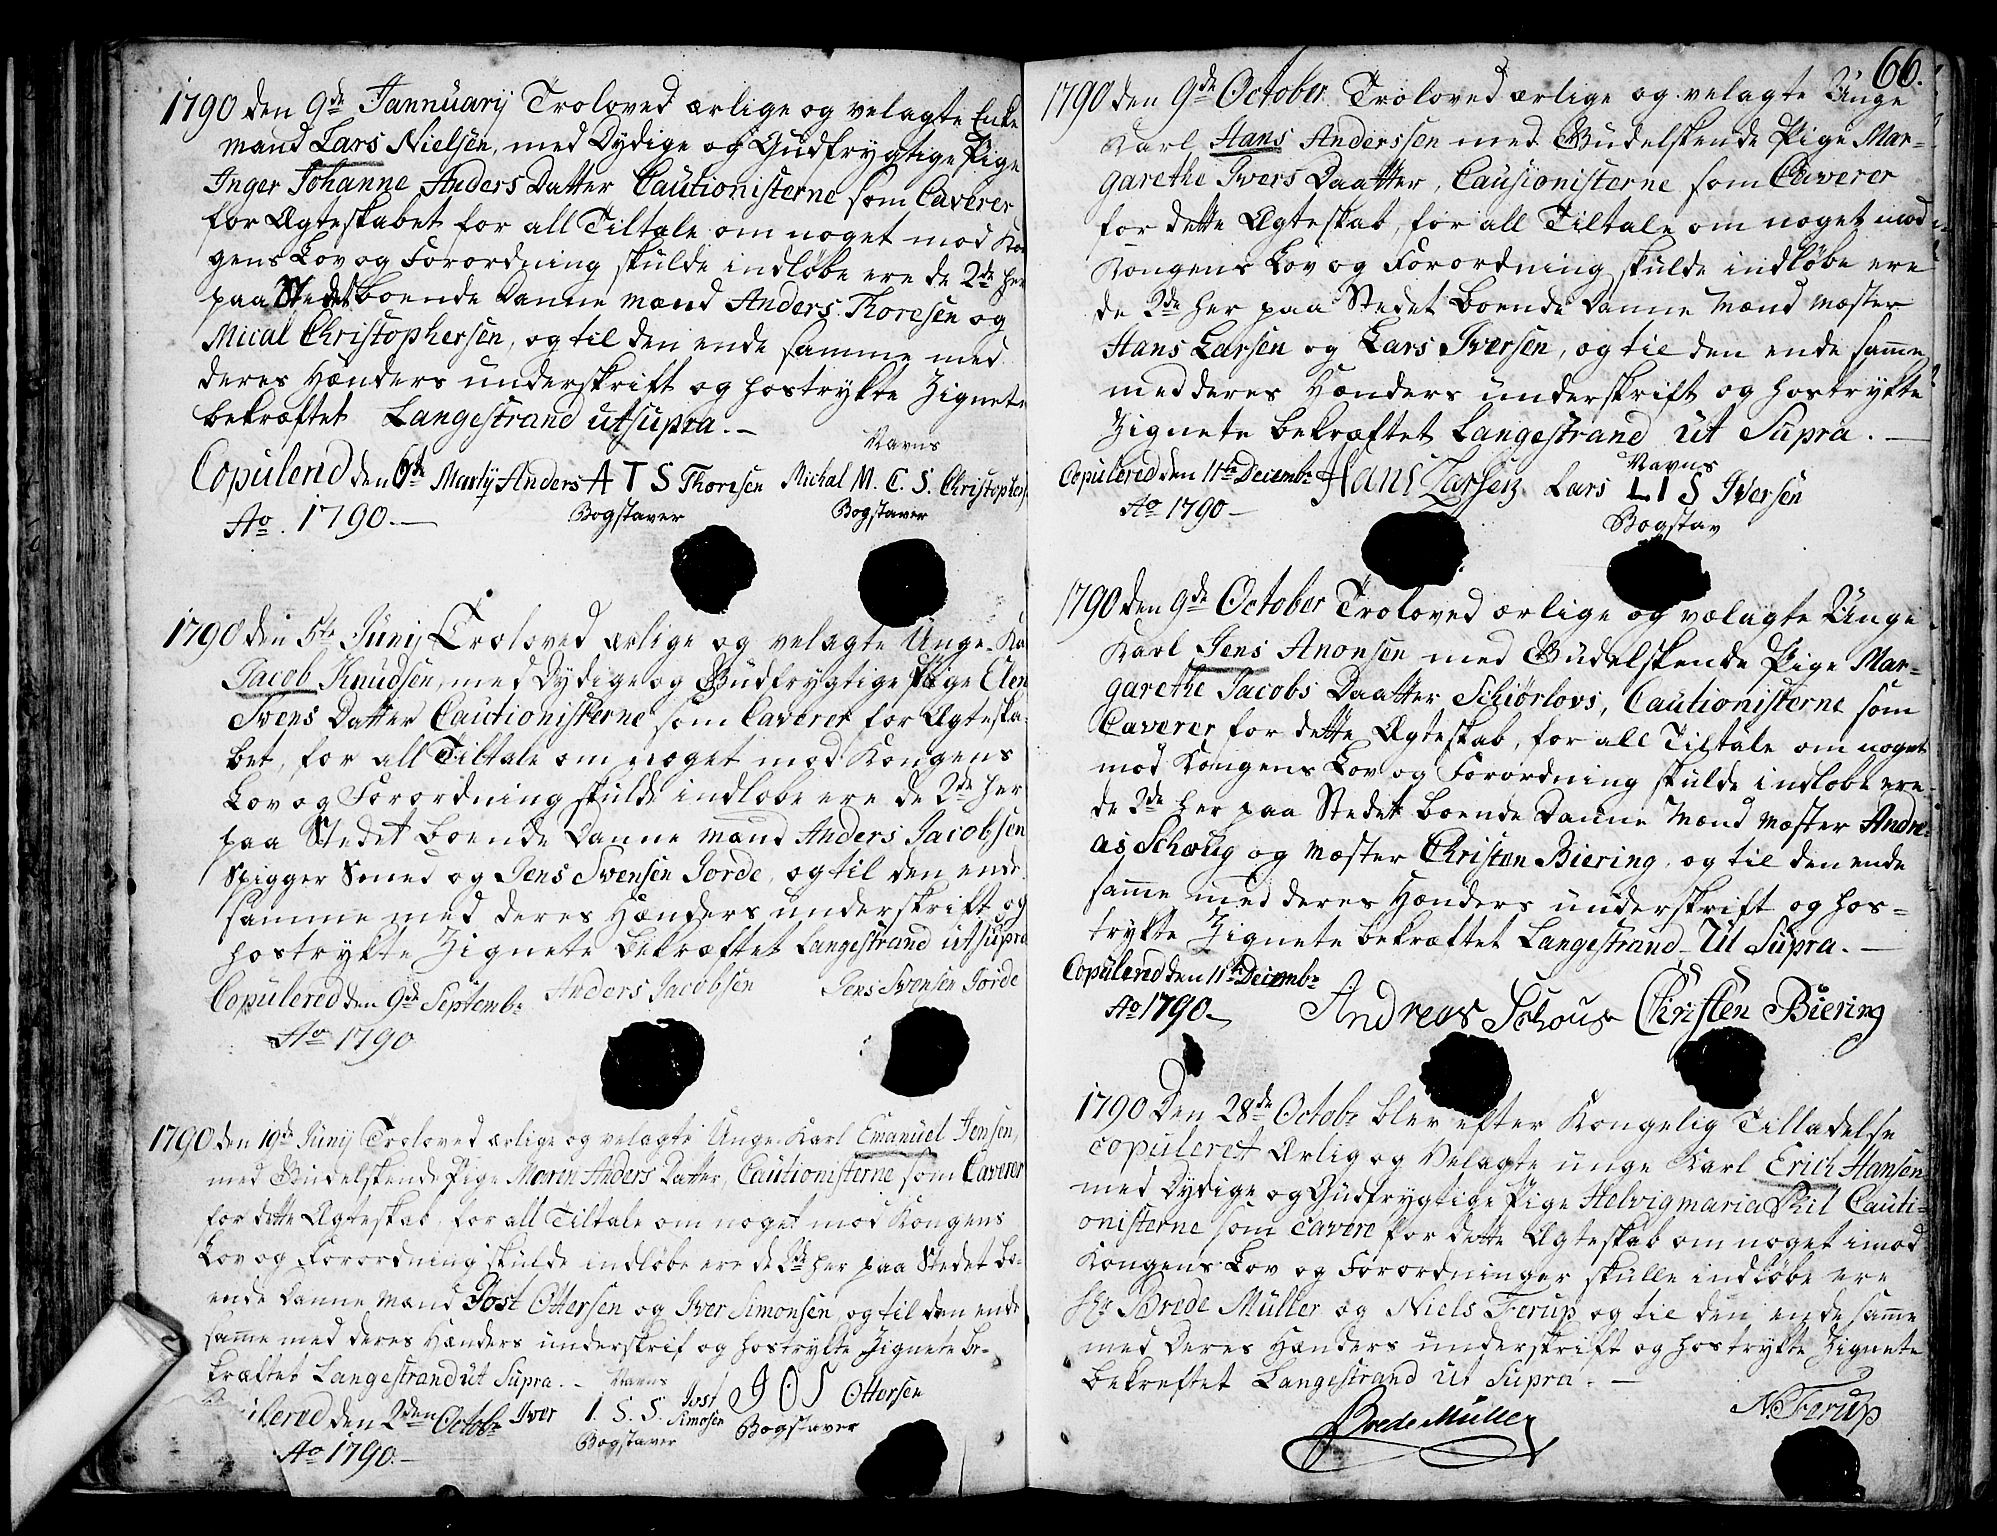 1790 den 9de Jannuarij Troloved ærlige og velagte Enke
mand Lars Nielsen, med Dydige og Gudfrygtige Pige
Inger Johanne Anders Datter Cautionisterne som Caverer
for Ægteskabet for all Tiltale om noget mod Kon
gens Lov og Forordning skulde indløbe ere de 2de her
paa Stedet boende Danne mænd Anders Thoresen og
Mical Christophersen, og til den ende samme med
deres Hænders underskrift og hostrykte Zignete
bekræftet Langestrand ut supra. —
Navns
Copulerid den 6te Martij Anders A T S Thoresen Michal M. C. S. Christophers
Ao. 1790. — Bogstaver Bogstaver
1790 den 5te Junij Troloved ærlige og velagte Unge Ka
Jacob Knudsen, med Dydige og Gudfrygtige Pige Elen
Svens Datter Cautionisterne som Caverer for Ægteska
bet, for all Tiltale om noget mod Kongens
Lov og Forordning skulde indlobe ere de 2de her
paa Stedet boende Danne mænd Anders Jacobsen
Spigger Smed og Jens Svensen Jorde, og til den ende
samme med deres Hænders underskrift og
hostrykte Zignete bekræftet Langestrand ut supra
Copulered den 9de Septembr Anders Jacobsen Jens Svensen Jorde
Ao 1790
1790 den 19de Junij Troloved ærlige og velagte Unge Karl Emanuel Jensen,
med Gudelskende Pige Maren Anders Datter, Cautionisterne som Caverer
for dette Ægteskab, for all Tiltale om noget mod Kongens
Lov og Forordning skulde indløbe ere de 2de her paa Stedet bo-
ende Danne mænd Jost Ottersen og Iver Simonsen, og til den ende
samme med deres Hænders underskrif og hostrykte Zignete be-
kræftet Langestrand ut Supra. — Navns
ulered den 2den Octobr Iver I. S. S. Simosen Jost J O S Ottersen
Ao 1790. — Bogstaver Bogstaver
66.
1790 den 9de October Troloved ærlige og velagte Unge
Karl Hans Anderssen med Gudelskende Pige Mar-
garethe Ivers Daatter, Causionisterne som Caverer
for dette Ægteskab, for all Tiltale om noget mod
Kongens Lov og Forordning skulde indløbe ere
de 2de her paa Stedet boende Danne Mænd Mæster
Hans Larsen og Lars Iversen, og til den ende samme
med deres Hænders underskrift og hostrykte
Zignete bekræftet Langestrand ut Supra. —
Navns
Copulered den 11te Decembr Hans Larsen Lars L I S Iversen
Ao 1790 — Bogstav
1790 den 9de October Troloved ærlige og vælagte Unge
Karl Jens Anonsen med Gudelskende Pige Mar-
garethe Jacobs Daatter Schiørlovs, Cautionisterne som
Caverer for dette Ægteskab, for all Tiltale om noget
mod Kongens Lov og Forordning skulde indlobe ere
de 2de her paa Stedet boende Danne Mænd Mæster Andre-
as Schoug og Mæster Christen Biering, og til den ende
samme med deres Hænders underskrift og hos=
trykte Zignete bekræftet Langestrand Ut Supra. —
Copulered den 11te Decembr
Ao 1790 — Andreas Schoug Christen Biering
1790 Den 28de Octobr blev efter Kongelig Tilladelse
copuleret Ærlig og Velagte unge Karl Erich Hansen
med Dydige og Gudfrygtige Pige Helvig maria Skil Cauti-
onisterne som cavere for dette Ægteskab om noget imod
Kongens Lov og Forordninger skulle indløbe ere
Sr Brede Müller og Niels Ferup og til den ende samme
med Deres Hænders underskrift og hostrykte Zignete
bekreftet Langestrand Ut Supra. —
Brede Müller N. Ferup